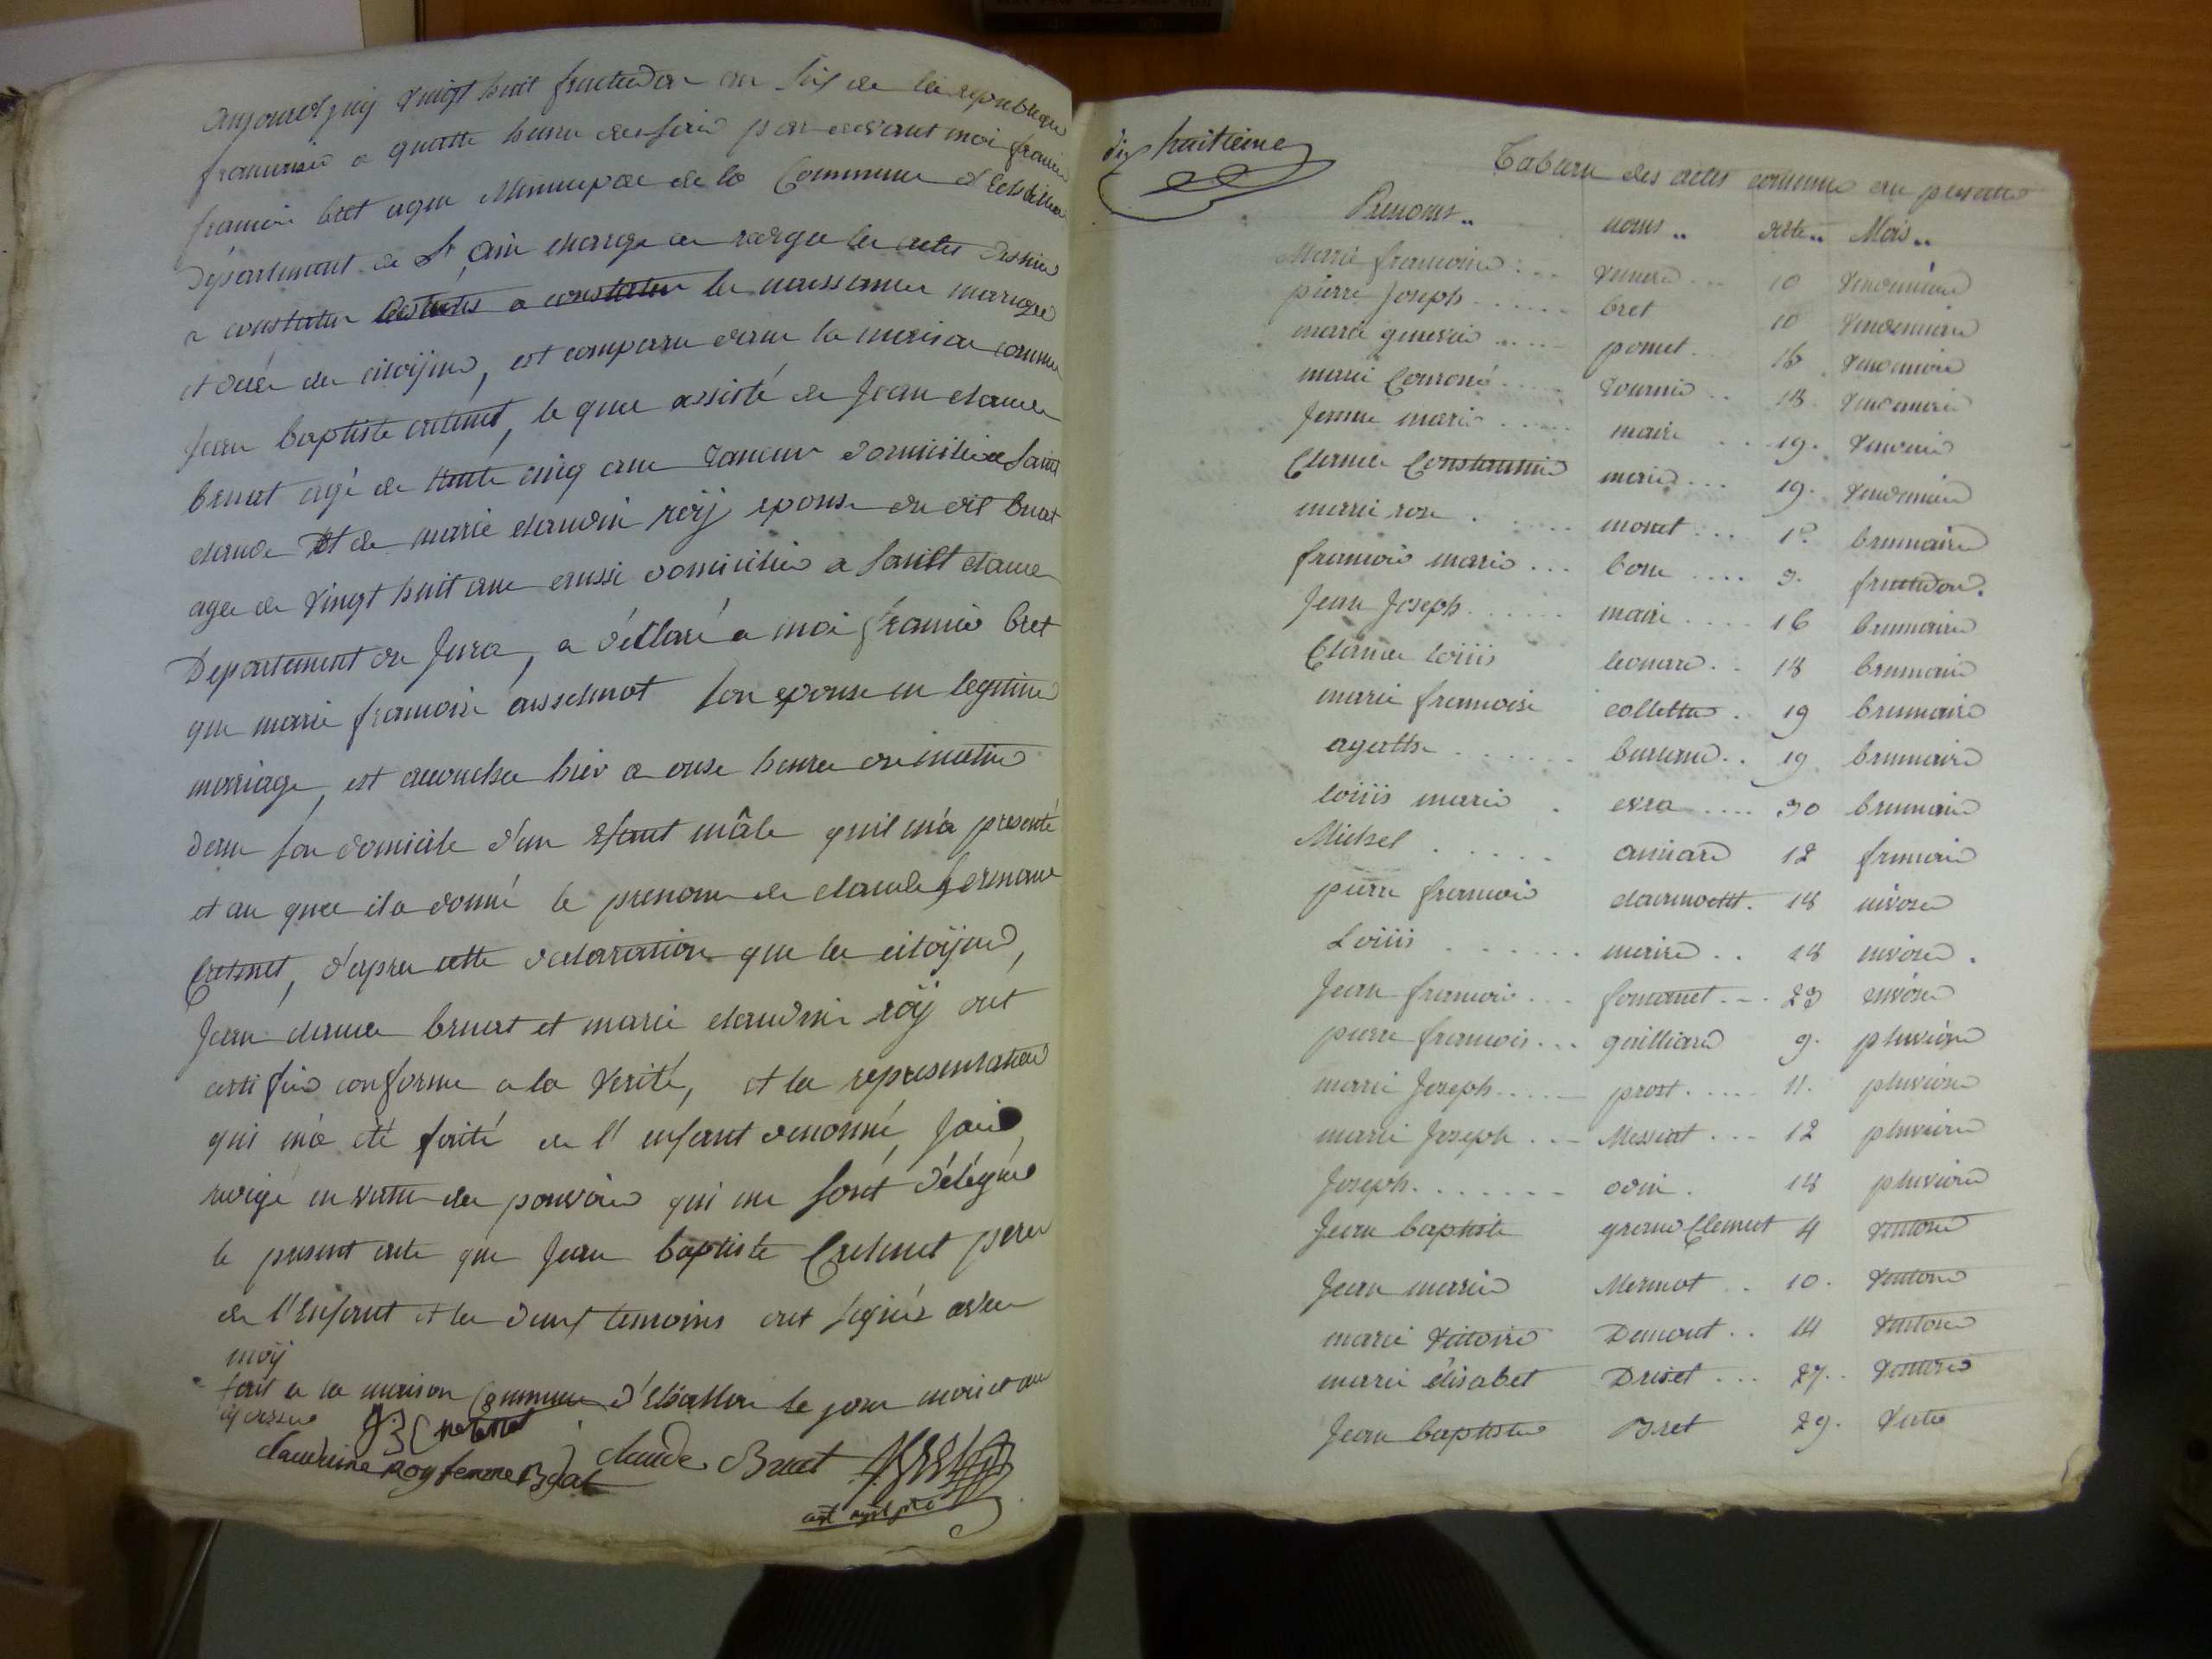 aujourdhuij vingt huit fructidor an six de la republique
francaise a quattre heure du soir par devant moi francois
francois bret agen Municipae de la Commune d'Echallon
Département de l'ain charge de rediger les actes destiné
a constater les naissance mariage
et décé des citoijens, est comparu dans la maison commune
Jean baptiste cretenet, le quel assisté de Jean claude
bruat agé de trente cinq ans domicilié a saint
claude et de marie claudine roÿ epouse du dit bruat
agée de vingt huit ans aussi domicilié a saint claude
Département du Jura, a déclaré a moi francois bret
que marie francoise ansselmot son epouse en legitime
mariage, est accouchée hier a onse heure du matin
dans son domicile d'un efant mâle quil m'a presenté
et au quel il a donné le prenom de claude fermand
Cretenet, d'apres cette déclaration que les citoÿens,
Jean claude bruat et marie claudine roÿ ont
certifiés conforme a la verité, et la representation
qui m'a été faité de l'enfant denommé, J'aie
redigé en vertu des pouvoirs qui me sont délégués
le present acte que Jean baptiste Cretenet pere
de l'enfant et les deux temoins ont signés avec
moÿ
fait a la maison Commune d'Echallon le jour mois et an
cy dessus
claudine Roy femme Bruat claude Bruat
agt mpl
dix huitieme
Tableau des actes contenus au present
Prenoms .. noms .. date .. Mois ..
Marie francoise ... 10 vendemiaire
pierre Joseph ..... bret 10 vendemiaire
marie genevie ..... ponset .. 16 vendemiaire
marie Couronné ..... tournie .. 18 vendemiaire
Jeanne marie ..... maire ... 19. vendemiaire
Claude Constantin maire ... 19. vendemiaire
marie rose ..... monet ... 1er brumaire
francois marie ... bone .... 9. fructidor.
Jean Joseph ...... maire .... 16 brumaire
Claude loiiis leonard .. 18 brumaire
marie francoise collettaz . 19 brumaire
agatthe ...... burnand .. 19 brumaire
loiiis marie . evra .... 30 brumaire
Michel ..... aniard 12 frimaire
pierre francois clairmontt . 18 nivose
Loiiis ...... maire .. 18 nivose .
Jean francois ... fontanet ... 23 nivose
pierre francois ... gailliard 9. pluviose
marie Joseph ..... prost ..... 11. pluviose
marie Joseph ... Messiat ... 12 pluviose
Joseph ...... odin . 18 pluviose
Jean baptiste grand Clement 4 ventose
Jean marie Mermot .. 10. ventose
marie victoire Dumont .. 14 ventose
marie élisabet Druet ... 27 .. ventose
Jean baptiste Bret 29. vento